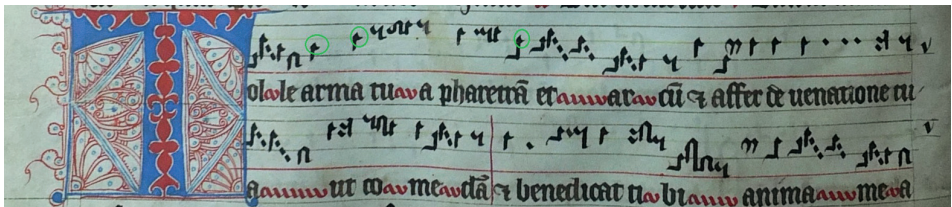 Tolle arma tua pharetrā et arcū ⁊ affer de uenatione tu
a ut comedā ⁊ benedicat tibi anima mea